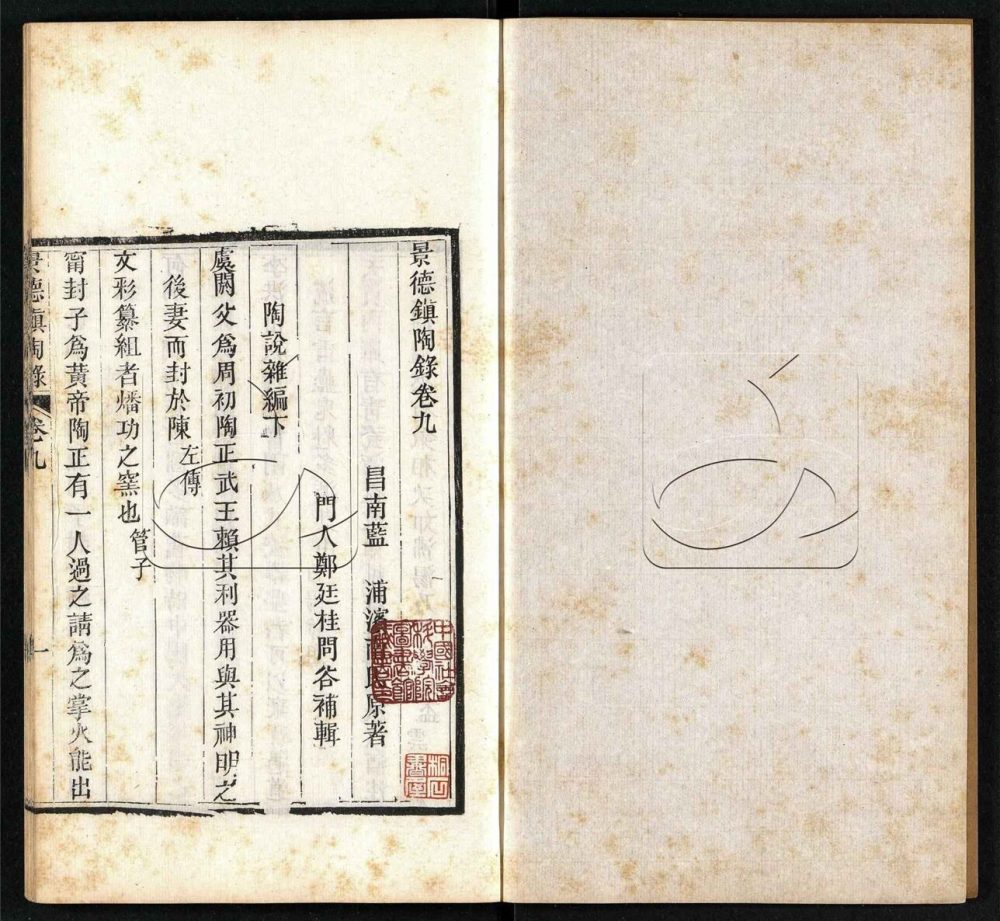 景德鎮陶錄卷九
昌南藍 浦濱南氏原著
門人鄭廷桂問谷補輯
陶說雜編下
虞閼父爲周初陶正武王賴其利器用與其神明之
後妻而封於陳左傳
文彩纂組者燔功之窰也管子
甯封子爲黃帝陶正有一人過之請爲之掌火能出
景德鎮陶錄 卷九 一
中國社會科學院圖書館藏書